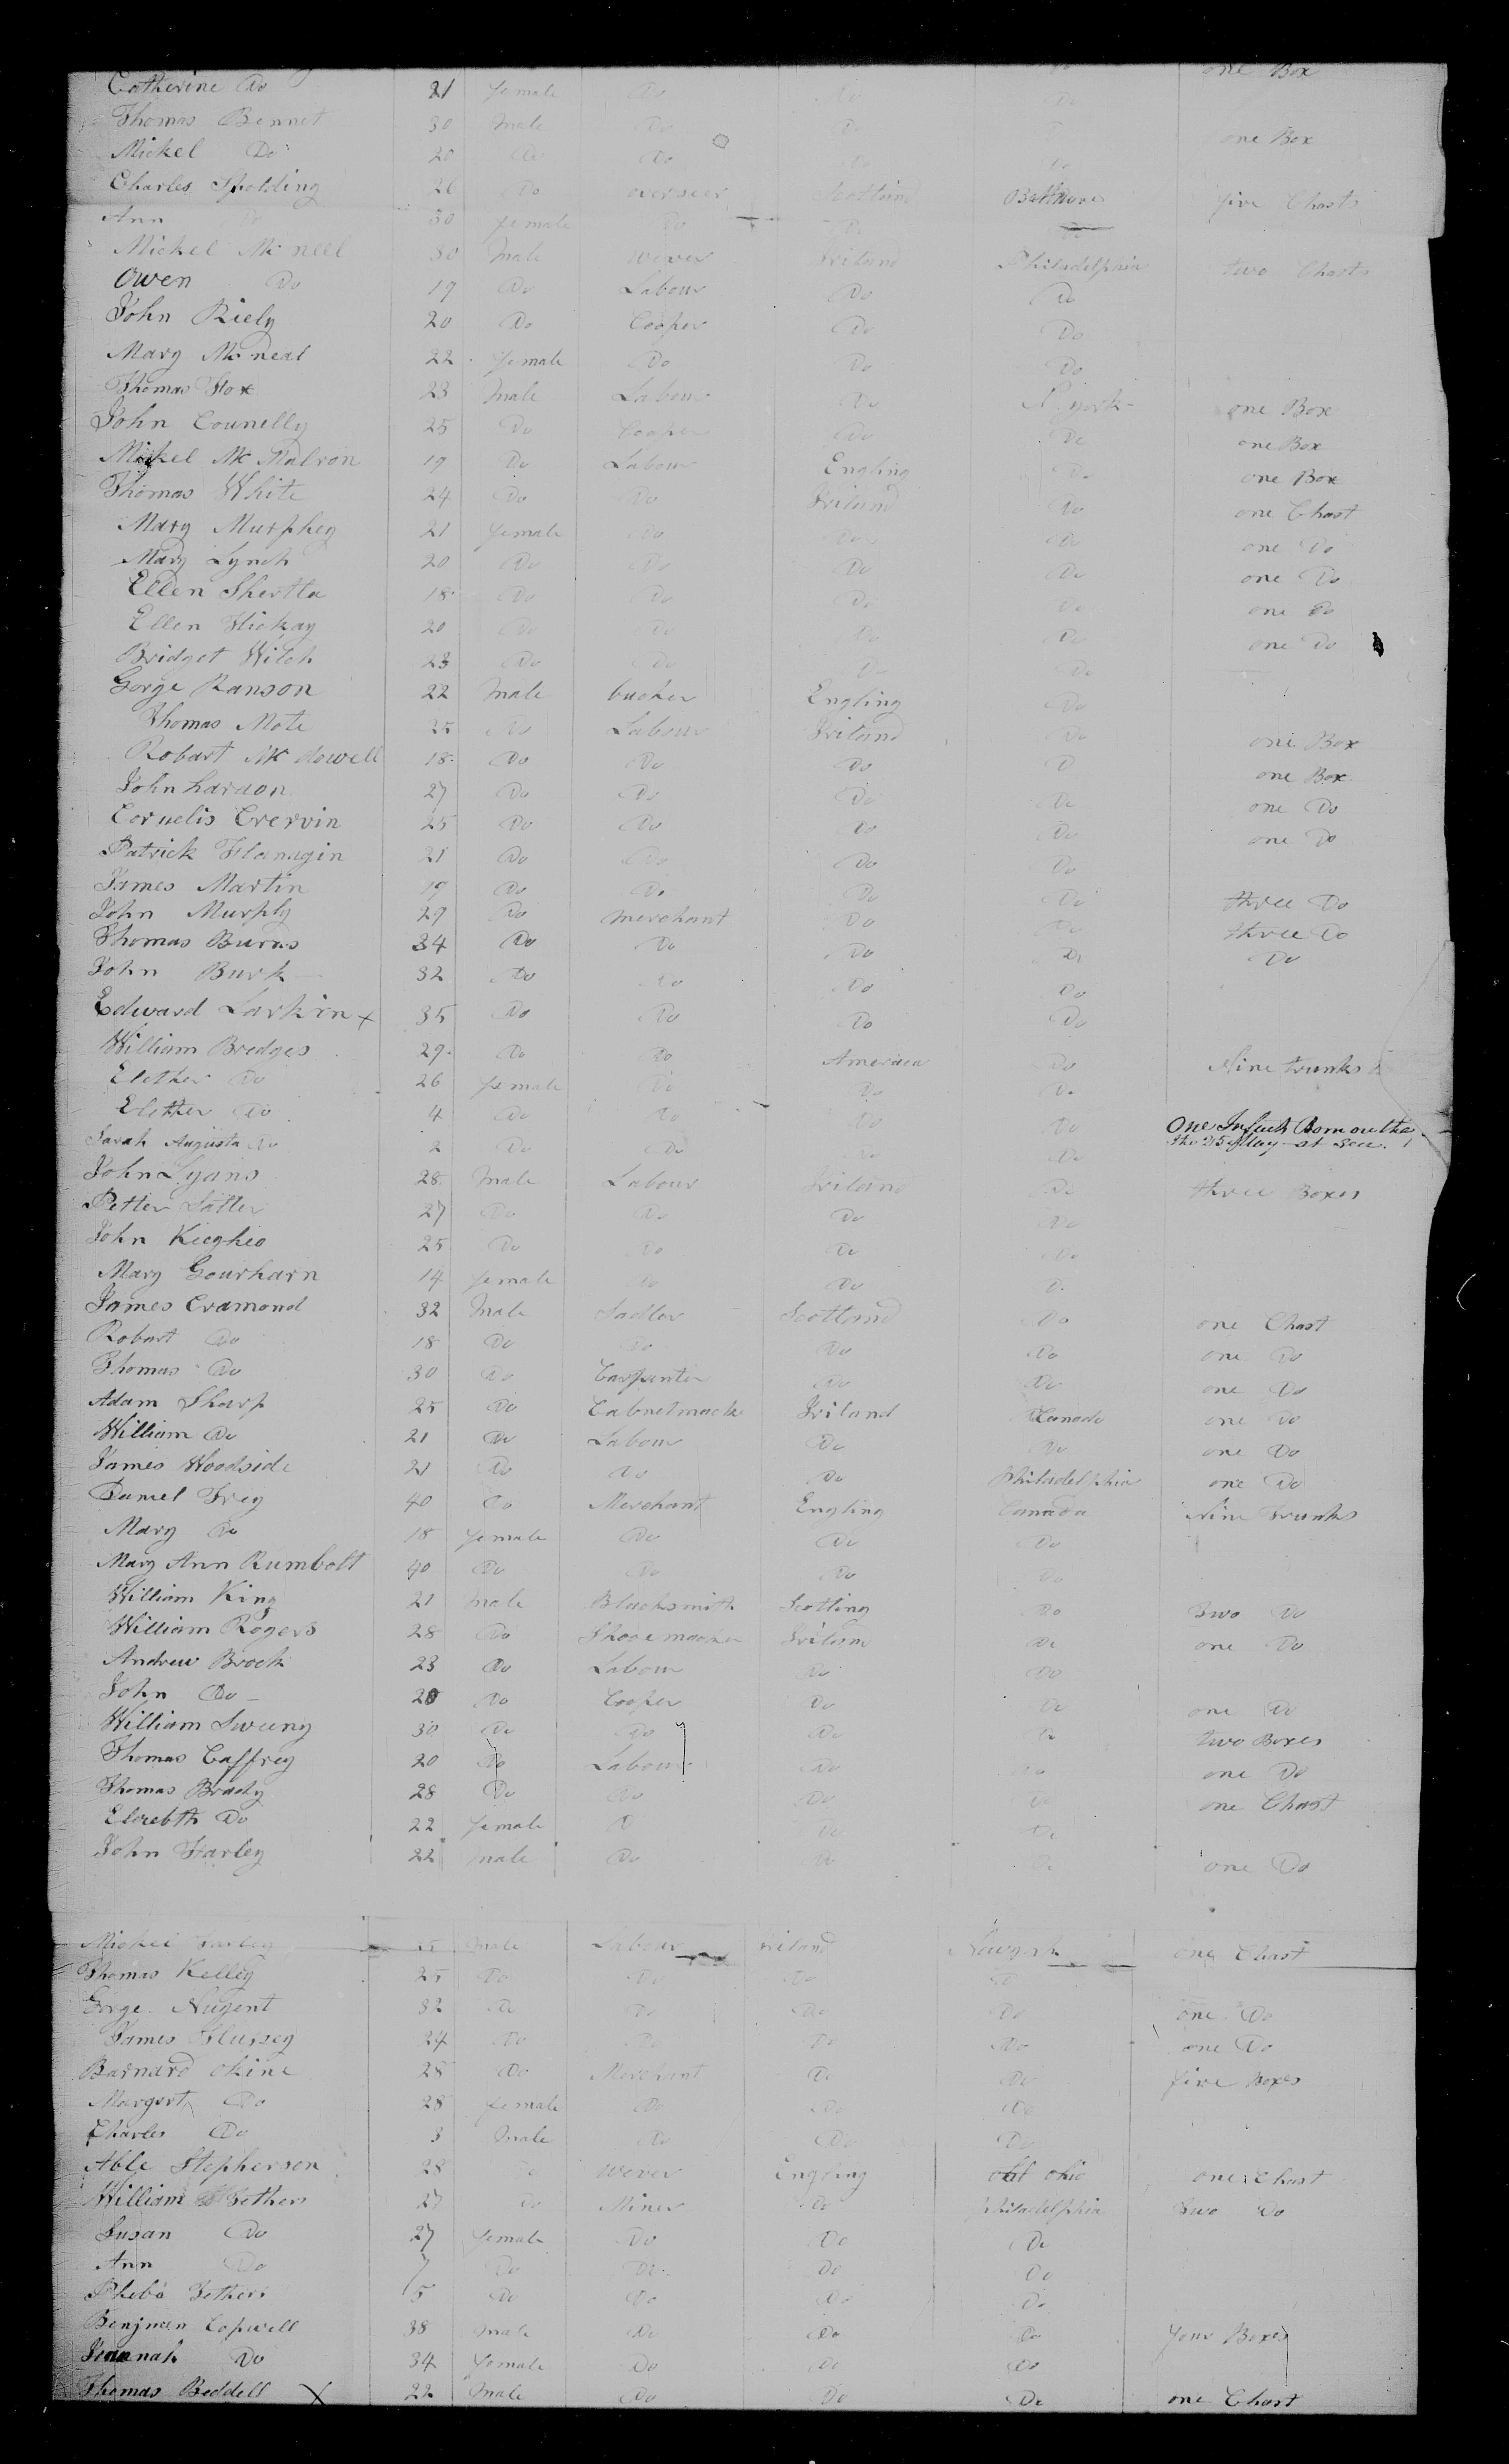 Catherine Do 21 female Do Do Do one Box
Thomas Bennet 30 Male Do Do one Box
Mickel Do 20 Do Do Do Do
Charles Spolding 26 Do overseer Scotland five Chasts
Ann Do 30 female Do Do Do
Mickel Mc neel 30 Male wever Iriland Philadelphia two Chasts
Owen Do 19 Do Labour Do Do
John Riely 20 Do Cooper Do Do
Mary Mc neal 22 female Do Do Do
Thomas Fox 23 Male Labour Do N. york one Box
John Counelly 25 Do Cooper Do Do one Box
Mickel Mc Malron 19 Do Labour Engling Do one Box
Thomas White 24 Do Do Iriland Do one Chast
Mary Murphey 21 female Do Do Do one Do
Mary Lynch 20 Do Do Do Do one Do
Ellen Shertla 18 Do Do Do Do one Do
Ellen Hickay 20 Do Do Do Do one Do
Bridget Wilch 23 Do Do Do Do
Gorge Ranson 22 Male bucher Engling Do
Thomas Mote 25 Do Labour Iriland Do one Box
Robart Mc dowell 18 Do Do Do D one Box
John Lardon 27 Do Do Do Do one Do
Cornelis Crervin 25 Do Do Do Do one Do
Patrick Flanagin 21 Do Do Do Do
James Martin 19 Do Do Do Do three Do
John Murply 29 Do merchant Do Do three Do
Thomas Burns 34 Do Do Do Do Do
John Burk 32 Do Do Do Do
Edward Larkin x 35 Do Do Do Do
William Bredges 29 Do Do Do Nine trunks
Elether Do 26 female Do Do Do
Elether Do 4 Do Do Do Do One Born on the
Sarah Augusta Do 2 Do Do Do Do the 25 of May at See.
John Lyans 28 Male Labour Iriland Do three Boxes
Petter Latler 27 Do Do Do Do
John Kieghio 25 Do Do Do Do
Mary Gourharn 14 female Do Do D.
James Cramond 32 Male Sadler Scotland Do one Chast
Robart Do 18 Do Do Do Do one Do
Thomas Do 30 Do Carpenter Do Do one Do
Adam Sharp 25 Do Cabnetmack Iriland Canada one Do
William Do 21 Do Labour Do Do one Do
James Woodside 21 Do Do Do Philadelphia one Do
Daniel Frey 40 Do Merchant Engling Canada Nine Trunks
Mary Do 18 female Do Do Do
Mary Ann Rumbolt 40 Do Do Do Do
William King 21 Male Blacksmith Scotling Do two Do
William Rogers 28 Do Shooemacker Do one Do
Andrew Brock 23 Do Labour Do Do
John Do 20 Do Cooper Do Do one Do
William Sweeny 30 Do Do Do Do two Boxes
Thomas Caffrey 20 Do Labour Do Do one Do
Thomas Brady 28 Do Do Do Do one Chast
Elizebth Do 22 female D Do Do
John Farley 22 male Do Do Do one Do
Mickel Farley 25 Male Labour Iriland Newyork one Chast
Thomas Kelley 25 Do Do Do D
Gorge Nugent 32 Do Do Do Do one Do
James Flursey 24 Do Do Do Do one Do
Barnard Okine 28 Do Merchant Do Do five Boxes
Margert Do 28 female Do Do Do
Charles Do 3 Male Do Do Do
Able Stepherson 28 Do wever Engling ohio one Chast
William Fothers 27 Do Miner Do Philadelphia two Do
Susan Do 27 female Do Do Do
Ann Do 7 Do Do Do Do
Phebe Fothers 5 Do Do Do Do
Benjmen Copwell 38 Male Do Do Do four Boxes
Do 34 female Do Do Do
Thomas Beddell x 22 Male Do Do Do one Chast